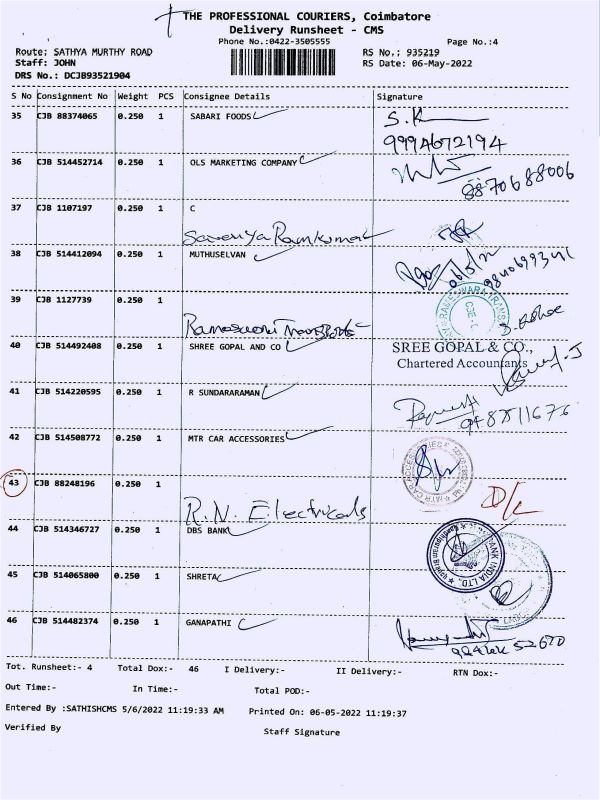 THE PROFESSIONAL COURIERS, Coimbatore
Delivery Runsheet - CMS
Phone No.:0422-3505555 Page No.:4
Route: SATHYA MURTHY ROAD RS No.: 935219
Staff: JOHN RS Date: 06-May-2022
DRS No.: DCJB93521904
S No Consignment No Weight PCS Consignee Details Signature
35 CJB 88374065 0.250 1 SABARI FOODS S.K
9994672194
36 CJB 514452714 0.250 1 OLS MARKETING COMPANY
8870688006
37 CJB 1107197 0.250 1 C
Saranya Ramkumar
38 CJB 514412094 0.250 1 MUTHUSELVAN 06/5/22
39 CJB 1127739 0.250 1
Ramaswami Transports
40 CJB 514492408 0.250 1 SHREE GOPAL AND CO SREE GOPAL & CO.,
Chartered Accountants
41 CJB 514220595 0.250 1 R SUNDARARAMAN
42 CJB 514508772 0.250 1 MTR CAR ACCESSORIES
43 CJB 88248196 0.250 1 D/L
R.N. Electricals
44 CJB 514346727 0.250 1 DBS BANK BANK INDIA LTD.
45 CJB 514065800 0.250 1 SHRETA
46 CJB 514482374 0.250 1 GANAPATHI
Tot. Runsheet:- 4 Total Dox:- 46 I Delivery:- II Delivery:- RTN Dox:-
Out Time:- In Time:- Total POD:-
Entered By :SATHISHCMS 5/6/2022 11:19:33 AM Printed On: 06-05-2022 11:19:37
Verified By Staff Signature